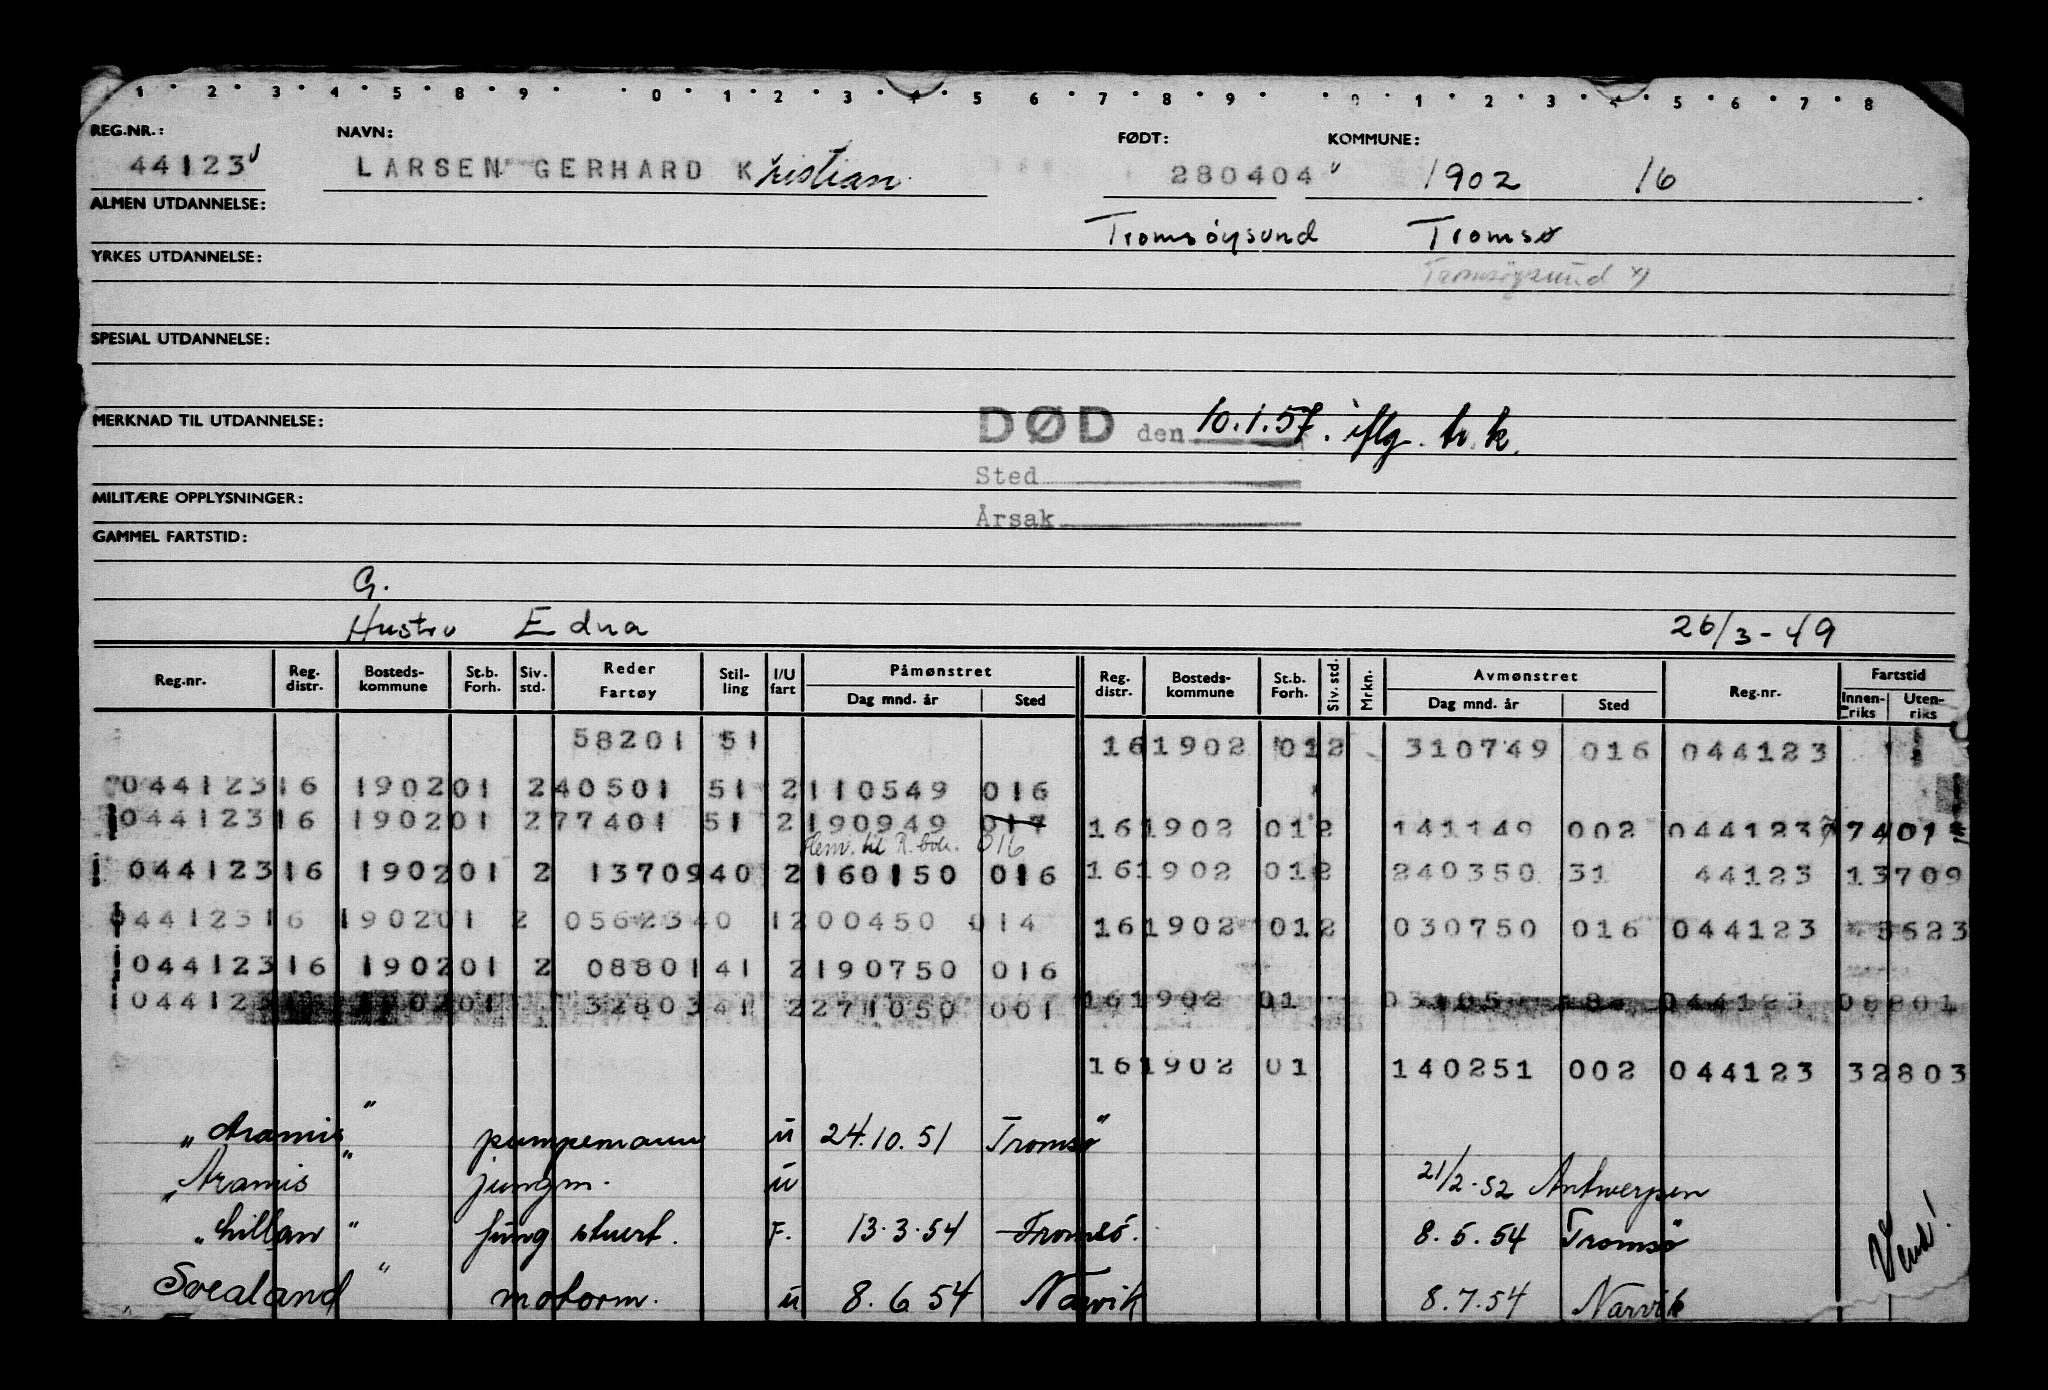 1 2 3 4 5 8 9 0 1 2 3 4 5 6 7 8 9 0 1 2 3 4 5 6 7 8
REG.NR.: NAVN: FØDT: KOMMUNE:
44123 LARSEN GERHARD Kristian 280404 1902 16
ALMEN UTDANNELSE:
Tromsøysund Tromsø
YRKES UTDANNELSE: Tromsøysund
SPESIAL UTDANNELSE:
MERKNAD TIL UTDANNELSE: DØD den 10.1.57. iflg. tr. k.
Sted
MILITÆRE OPPLYSNINGER:
Årsak
GAMMEL FARTSTID:
G.
Hustru Edna 26/3-49
Reg.nr. Reg. distr. Bosteds-kommune St.b. Forh. Siv. std. Reder Fartøy Stil-ling I/U fart Påmønstret Dag mnd. år Sted Reg. distr. Bosteds-kommune St.b. Forh. Siv. std. Mrkn. Avmønstret Dag mnd. år Sted Reg.nr. Fartstid Innen-riks Uten-riks
58201 51 161902 012 310749 016 044123
04412316 190201 240501 51 2110549 016
04412316 190201 277401 51 2190949 017 161902 012 141149 002 044123 77401
R. 016
04412316 190201 2 1370940 2160150 016 161902 012 240350 31 44123 13709
04412316 190201 2 0562340 1200450 014 161902 012 030750 016 044123 5623
04412316 190201 2 0880141 2190750 016
044123 190201 3280341 2271050 001 161902 01 044123 08801
161902 01 140251 002 044123 32803
"Aramis" pumpemann u 24.10.51 Tromsø
"Aramis" jungm. u 21/2-52 Antwerpen
"Lillan" jung stuert. F. 13.3.54 Tromsö. 8.5.54 Tromsø
Svealand" motorm. u 8.6 54 Narvik 8.7.54 Narvik
Vend!